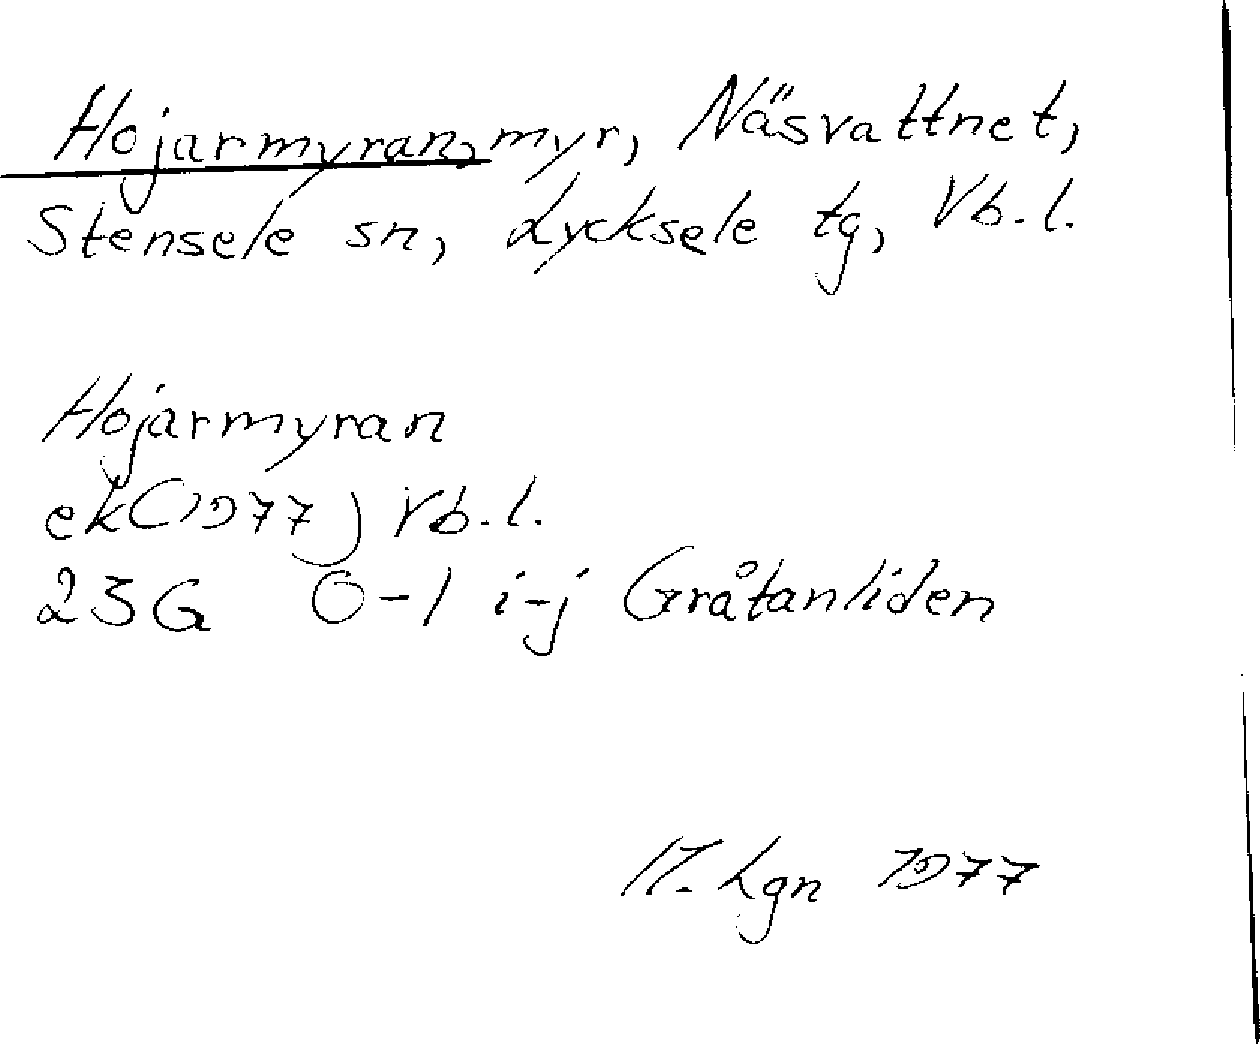 Hojarmyran, myr, Näsvattnet,
Stensele sn, Lycksele tg, Vb.l.
Hojarmyran
ek(1977) Vb.l.
23G 0-1 i-j Gråtanliden
Lgn 1977